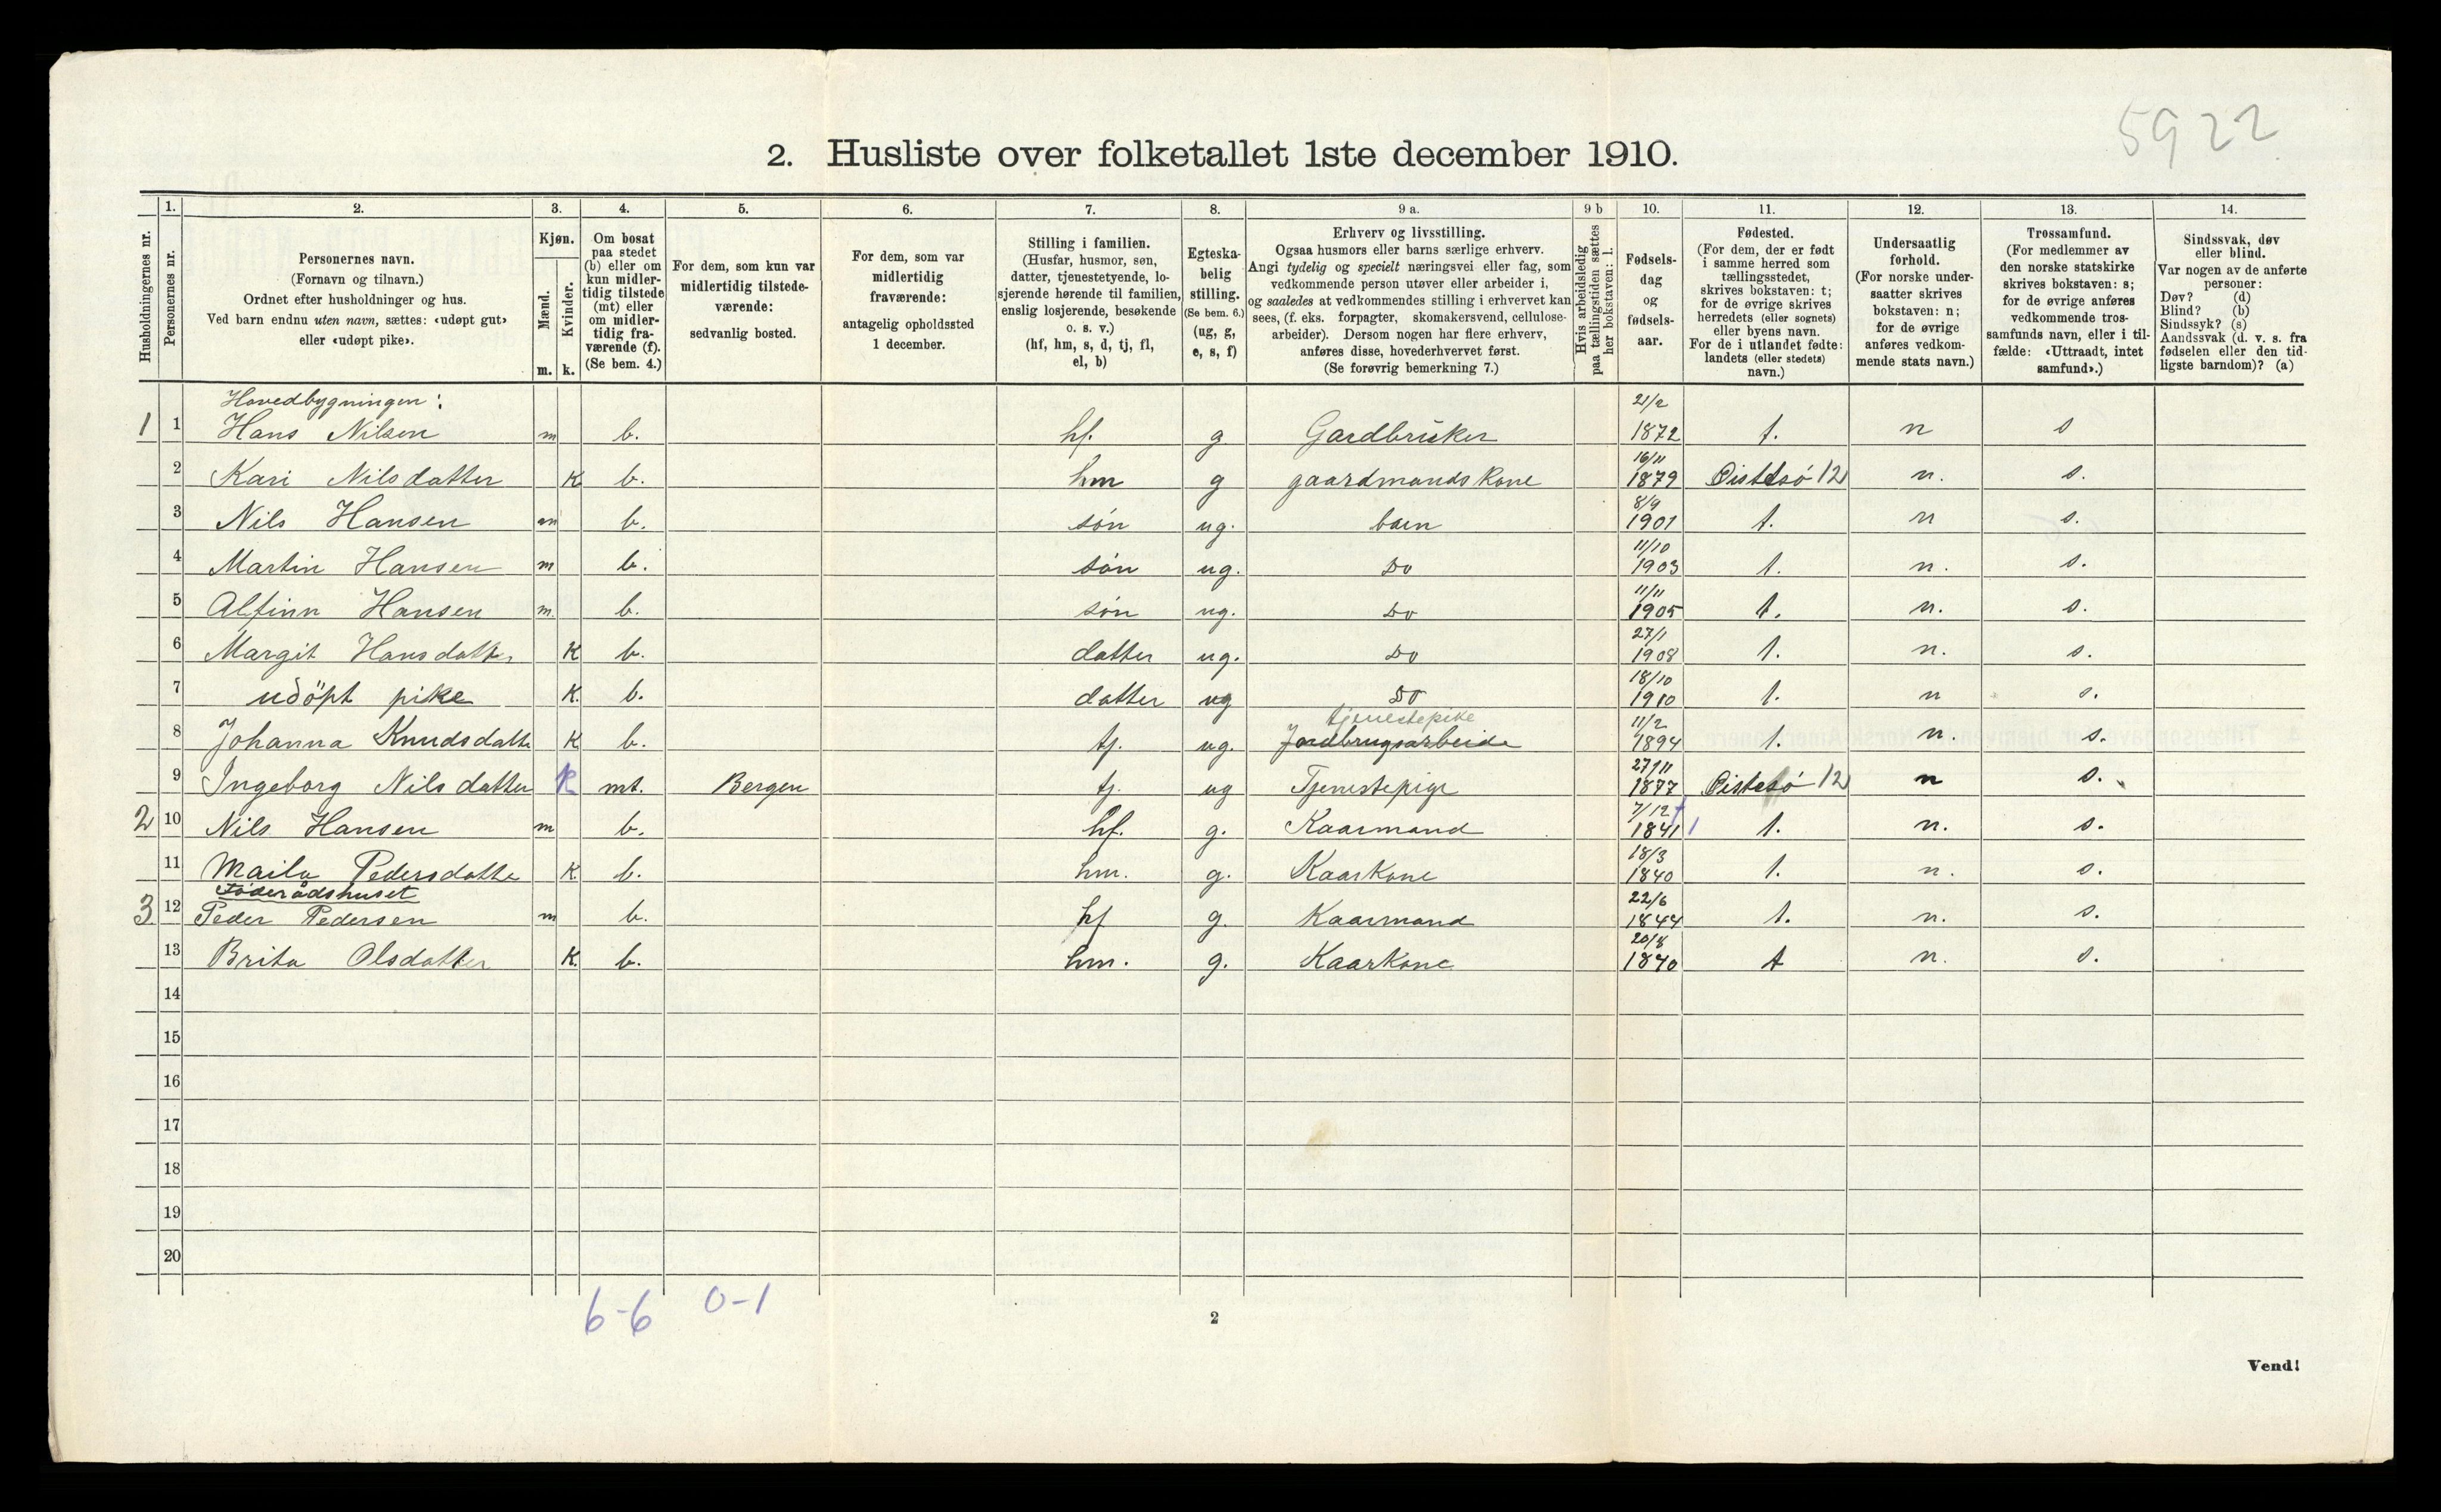 5922
2. Husliste over folketallet 1ste december 1910.
Husholdningernes nr.
1. Personernes nr.
2. Personernes navn.
(Fornavn og tilnavn.)
Ordnet efter husholdninger og hus.
Ved barn endnu uten navn, sættes: «udøpt gut»
eller «udøpt pike».
3. Kjøn.
Mænd. m.
Kvinder. k.
4. Om bosat
paa stedet
(b) eller om
kun midler-
tidig tilstede
(mt) eller
om midler-
tidig fra-
værende (f).
(Se bem. 4.)
5. For dem, som kun var
midlertidig tilstede-
værende:
sedvanlig bosted.
6. For dem, som var
midlertidig
fraværende:
antagelig opholdssted
1 december.
7. Stilling i familien.
(Husfar, husmor, søn,
datter, tjenestetyende, lo-
sjerende hørende til familien,
enslig losjerende, besøkende
o. s. v.)
(hf, hm, s, d, tj, fl,
el, b)
8. Egteska-
belig
stilling.
(Se bem. 6.)
(ug, g,
e, s, f)
9 a. Erhverv og livsstilling.
Ogsaa husmors eller barns særlige erhverv.
Angi tydelig og specielt næringsvei eller fag, som
vedkommende person utøver eller arbeider i,
og saaledes at vedkommendes stilling i erhvervet kan
sees, (f. eks. forpagter, skomakersvend, cellulose-
arbeider). Dersom nogen har flere erhverv,
anføres disse, hovederhvervet først.
(Se forøvrig bemerkning 7.)
9 b Hvis arbeidsledig
paa tællingstiden sættes
her bokstaven: l.
10. Fødsels-
dag
og
fødsels-
aar.
11. Fødested.
(For dem, der er født
i samme herred som
tællingsstedet,
skrives bokstaven: t;
for de øvrige skrives
herredets (eller sognets)
eller byens navn.
For de i utlandet fødte:
landets (eller stedets)
navn.)
12. Undersaatlig
forhold.
(For norske under-
saatter skrives
bokstaven: n;
for de øvrige
anføres vedkom-
mende stats navn.)
13. Trossamfund.
(For medlemmer av
den norske statskirke
skrives bokstaven: s;
for de øvrige anføres
vedkommende tros-
samfunds navn, eller i til-
fælde: «Uttraadt, intet
samfund».)
14. Sindssvak, døv
eller blind.
Var nogen av de anførte
personer:
Døv? (d)
Blind? (b)
Sindssyk? (s)
Aandssvak (d. v. s. fra
fødselen eller den tid-
ligste barndom)? (a)
Hovedbygningen:
1 1 Hans Nilsen m b. hf. g Gardbruker 21/2 1872 t. n s
2 Kari Nilsdatter K b. hm g gaardmandskone 16/11 1879 Øistesö 12 n. s.
3 Nils Hansen m b. søn ug. barn 8/9 1901 t. n s.
4 Martin Hansen m b. søn ug. Do 11/10 1903 t. n. s.
5 Alfinn Hansen m. b. søn ug. Do 11/11 1905 t. n. s.
6 Margit Hansdatter K b. datter ug. Do 27/1 1908 t. n. s.
7 udöpt pike K. b. datter ug Do 18/10 1910 t. n s.
tjenestepike
8 Johanna Knudsdatte K b. tj. ug. Jordbrugsarbeide 11/2 1894 t. n. s.
9 Ingeborg Nilsdatter K mt. Bergen tj. ug Tjenestepige 27/11 1877 Øistesö 12 n s.
2 10 Nils Hansen m b. hf. g. Kaarmand 7/12 1841 t. n. s.
11 Pedersdatte K. b. hm. g. Kaarkone 18/3 1840 t. n. s.
Föderådshuset
3 12 Peder Pedersen m b. hf g. Kaarmand 22/6 1844 t. n. s.
13 Brita Olsdatter K. b. hm. g. Kaarkone 20/8 1840 t n. s.
14
15
16
17
18
19
20
6-6 0-1
2
Vend!